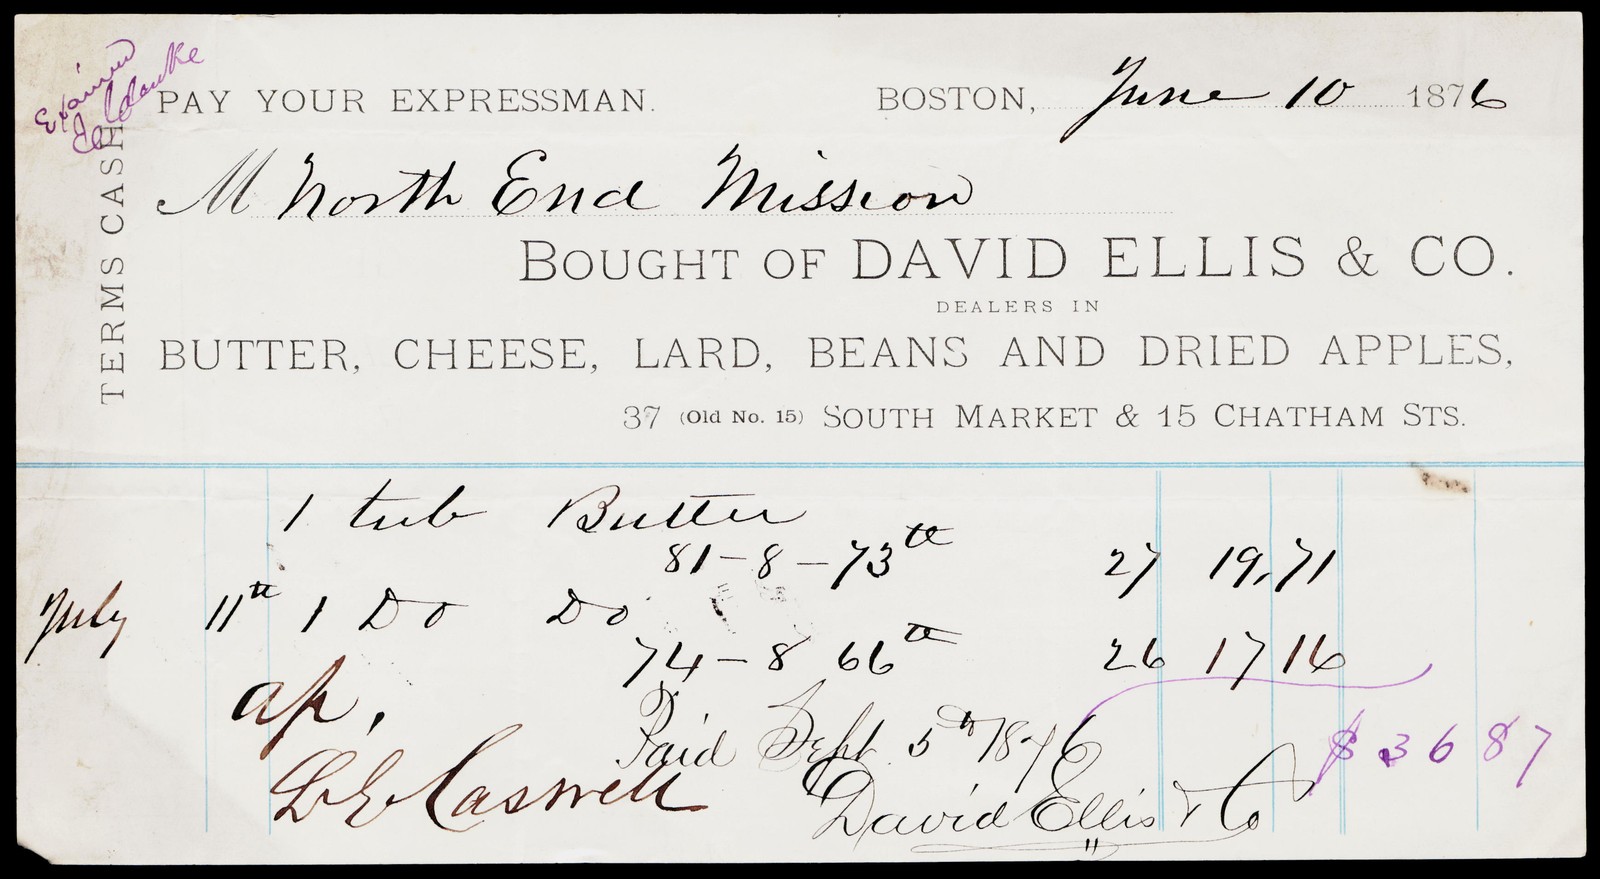 Examined
PAY YOUR EXPRESSMAN.
BOSTON, June 10 1876
TERMS CASH
M North End Mission
BOUGHT OF DAVID ELLIS & CO.
DEALERS IN
BUTTER, CHEESE, LARD, BEANS AND DRIED APPLES,
37 (Old No. 15) SOUTH MARKET & 15 CHATHAM STS.
1 tub Butter
81-8-73 lb 27 19,71
July 11th 1 Do Do
74-8 66 lb 26 17 16
$36 87
ap,
Paid Sept 5th 1876
L E Caswell
David Ellis & Co